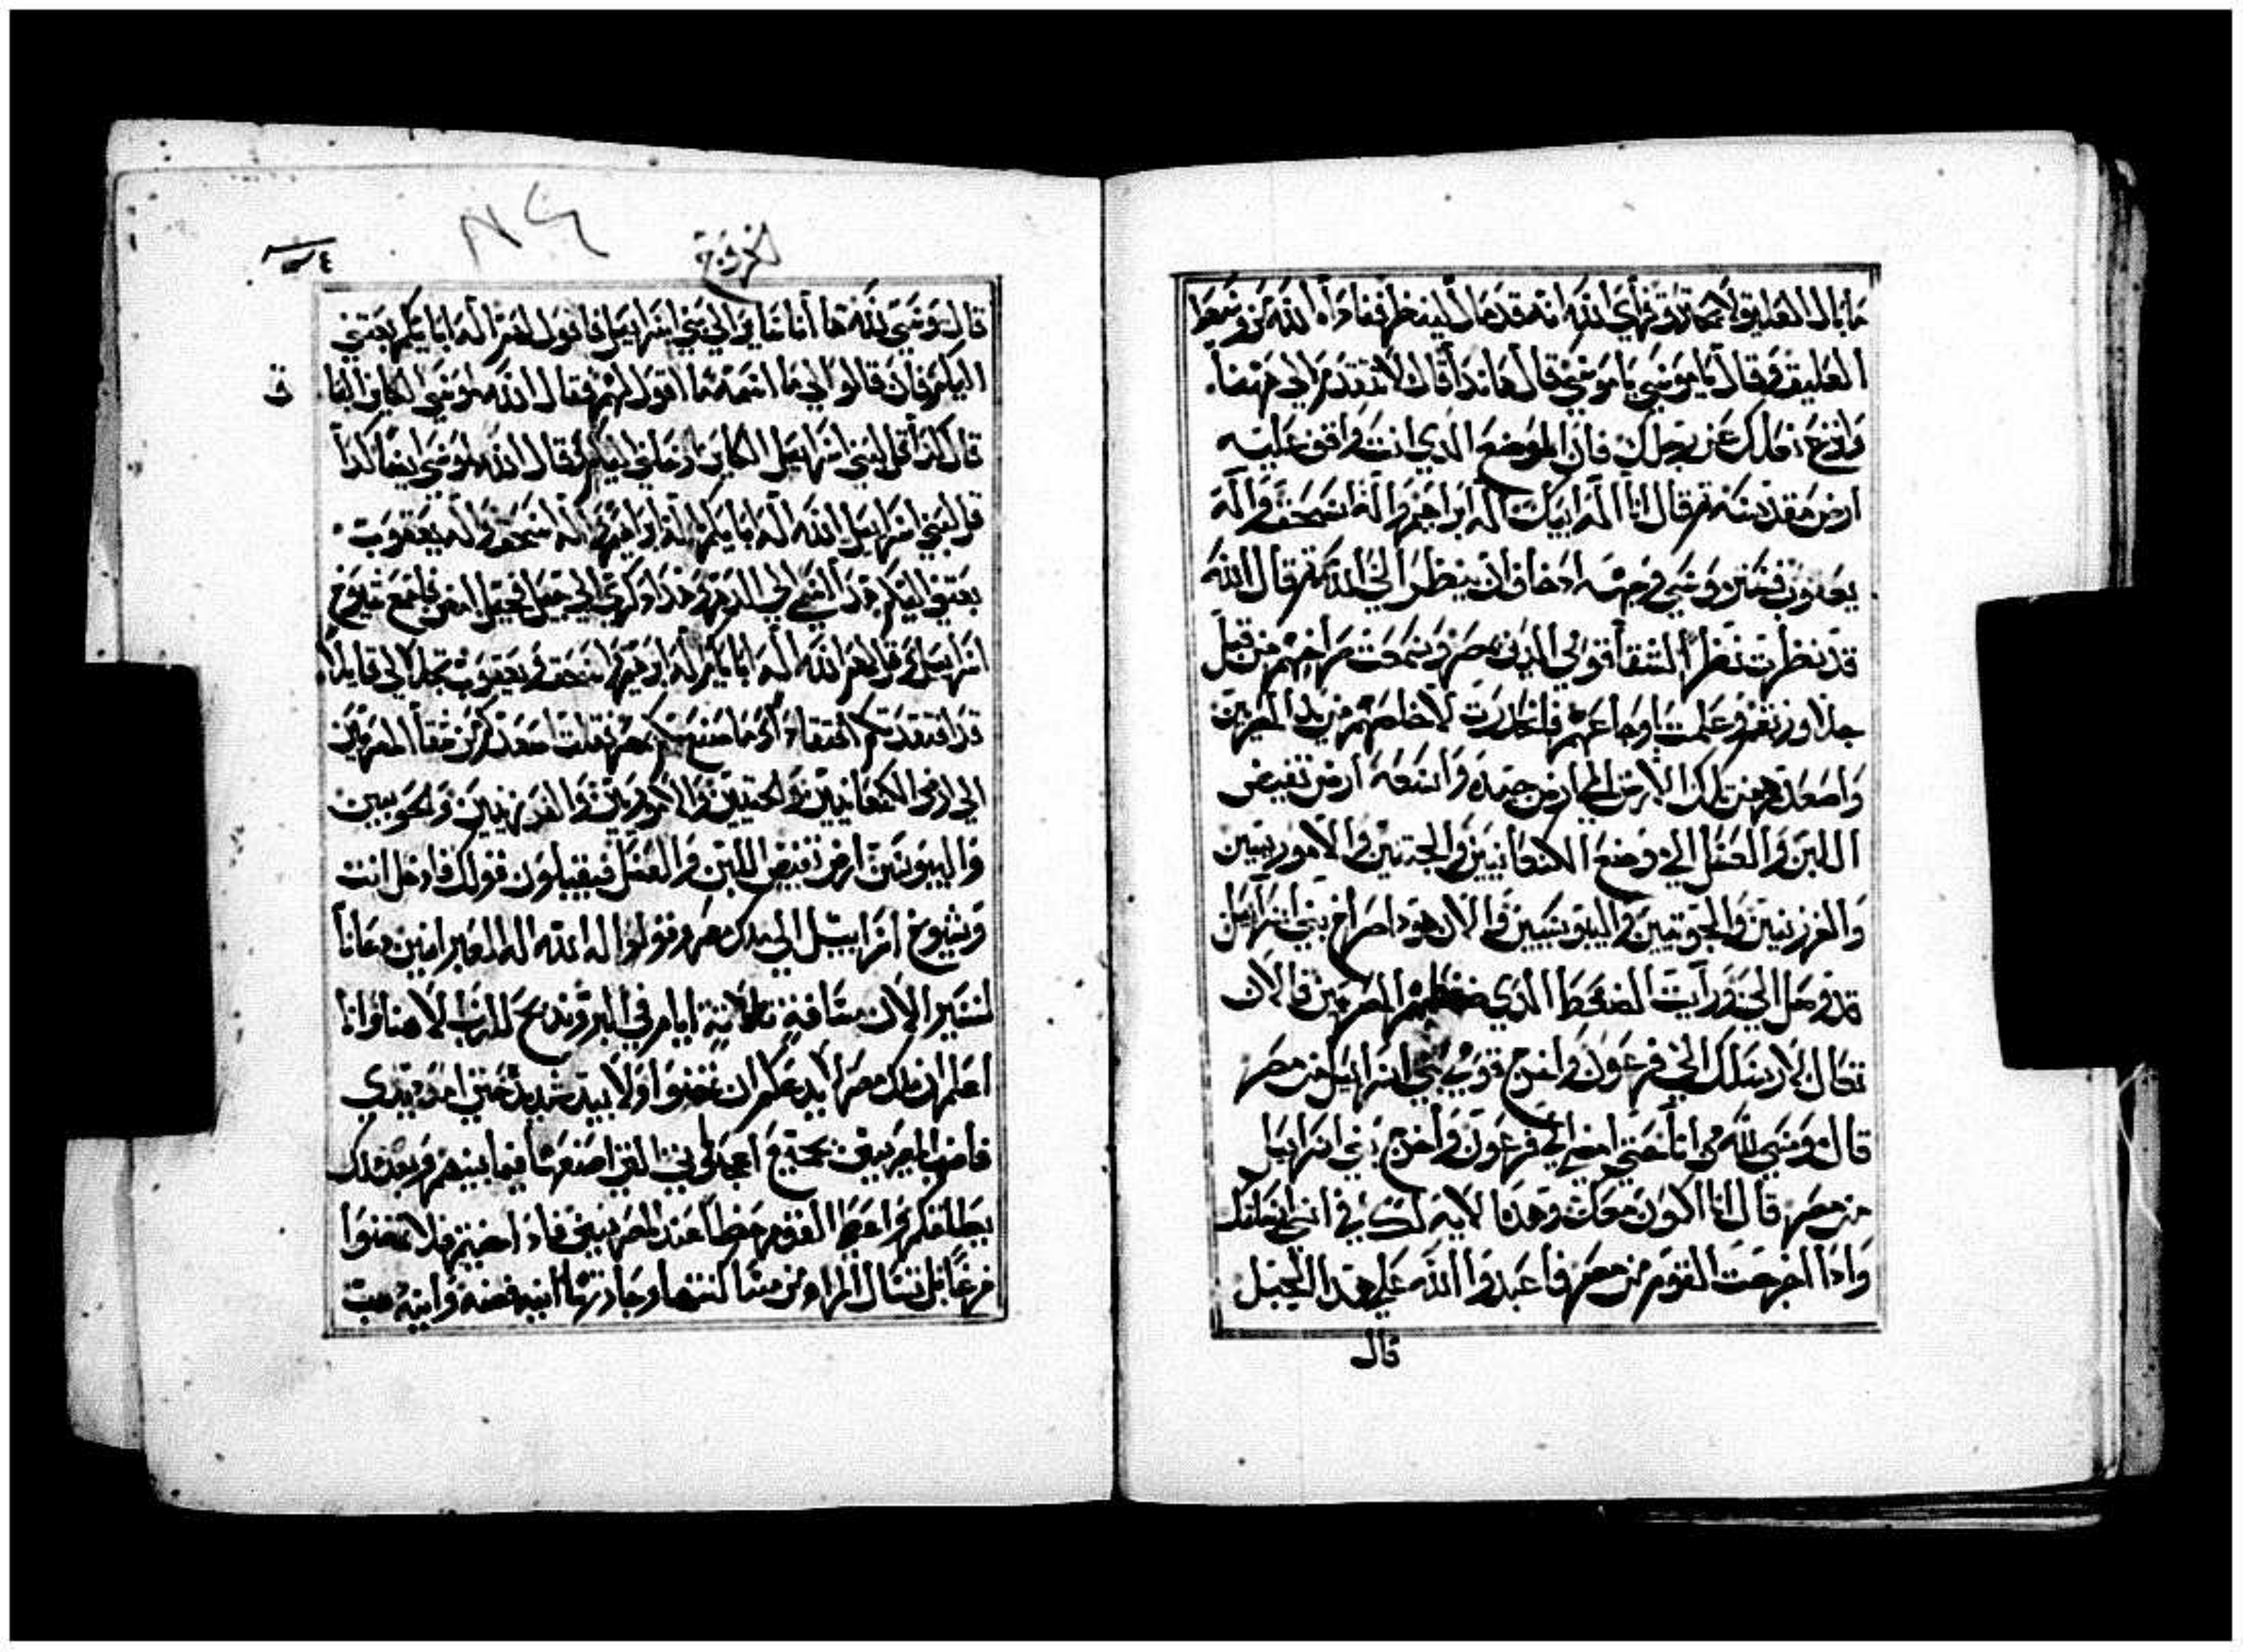 ما بال العليق لا يحترق فراي الله انه قد مال لينظر فناداه الله من وسط
العليق وقال يا موسى يا موسى قال هانذا قال لا تتقدم الى ههنا
وانزع نعلك عن رجلك فان الموضع الذي انت واقف عليه
ارض مقدسه ثم قال انا اله ابيك اله ابراهيم واله اسحق واله
يعقوب فستر موسى وجهه اذ خاف ان ينظر الى الله ثم قال الله
قد نظرت نظرا لشقا قومي الذين بمصر وسمعت صراخهم من قبل
جلاوزتهم وعلمت اوجاعهم فانحدرت لاخلصهم من يد المصريين
واصعدهم من تلك الارض الى ارض جيده واسعه ارض تفيض
اللبن والعسل الى موضع الكنعانيين والحتيين والاموريين
والفرزيين والحويين واليبوسيين والان هوذا صراخ بني اسراييل
قد وصل الي ورايت الضغط الذي المصريين فالان
تعال لارسلك الى فرعون واخرج قومي بني اسراييل من مصر
قال موسى لله من انا حتى امضي الى فرعون واخرج بني اسراييل
من مصر قال انا اكون معك وهذا لايه لك في انني ارسلتك
واذا اخرجت القوم من مصر فاعبدوا الله على هذا الجبل
قال
الخروج
٤
ق
قال موسى لله ها أنا ماض الى بني اسراييل فاقول لهم اله ابايكم بعثني
اليكم فان قالوا لي ما اسمه ما اقول لهم فقال الله لموسى الكاين
قال كذا قل لبني اسراييل الكاين ارسلني اليكم وقال الله لموسى ايضا كذا
قل لبني اسراييل الله اله ابايكم اله ابراهيم واله اسحق واله يعقوب
بعثني اليكم هذا اسمي الى الدهر وهذا ذكري الى جيل الجيل امض فاجمع شيوخ
اسراييل وقل لهم الله اله ابايكم اله ابرهيم واسحق ويعقوب تجلا لي قايلا
قد افتقدتكم افتقادا وما صنع بكم بمصر فقلت اصعدكم من شقا المصريين
الى ارض الكنعانيين والحتيين والاموريين والفرزيين والحويين
واليبوسيين ارض تفيض اللبن والعسل فيقبلون قولك فادخل انت
وشيوخ اسراييل الى ملك مصر وقولوا له الله اله العبرانيين دعانا
لنسير الان مسافة ثلاثة ايام في البر ونذبح للرب الاهنا وانا
اعلم ان ملك مصر لا يدعكم ان تمضوا ولا بيد شديده حتى امد يدي
فاضرب المصريين بجميع اعجوباتي التي اصنعها فيما بينهم وبعد ذلك
يطلقكم واعطي القوم حظا عند المصريين فاذا مضيتم فلا تمضوا
فرغا بل تسال المراه من مساكنتها وجارتها انيه فضه وانيه